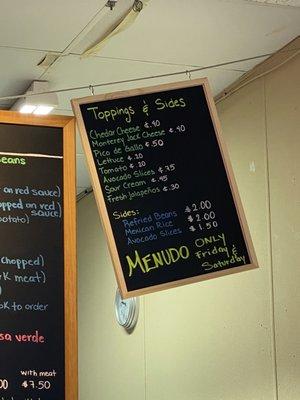 Toppings & Sides
Chedar Cheese ¢.40
Monterey Jack Cheese ¢.40
Pico de Gallo ¢.50
Lettuce ¢.20
Tomato ¢.20
Avocado Slices ¢.75
Sour Cream ¢.45
Fresh Jalapeños ¢.30
Sides:
Refried Beans $2.00
Mexican Rice $2.00
Avocado Slices $1.50
MENUDO ONLY
Friday &
Saturday
Beans
on red sauce)
on red
sauce)
potato)
chopped
meat)
to order
salsa verde
with meat
$7.50